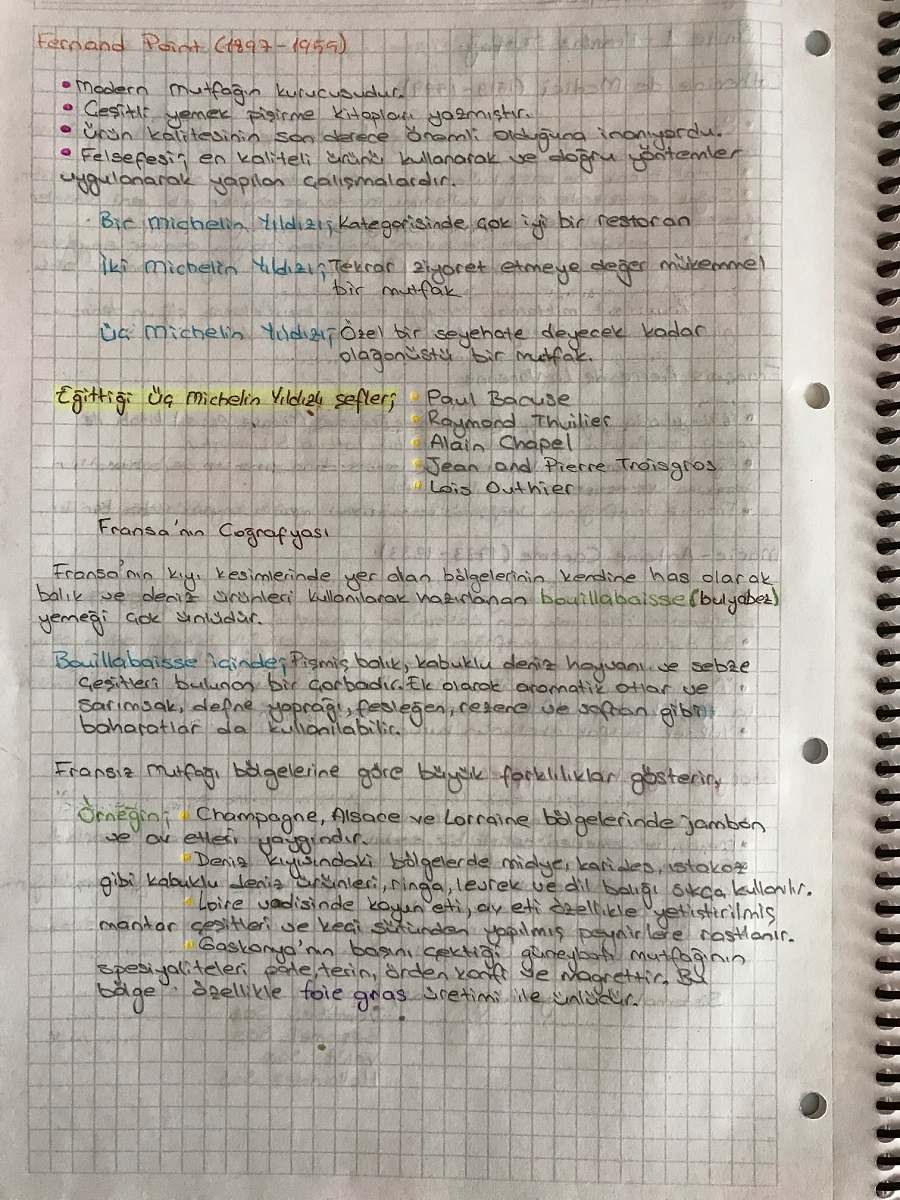 Fernand Point (1897-1955)
• Modern mutfağın kurucusudur.
• Çeşitli yemek pişirme kitapları yazmıştır.
• Ürün kalitesinin son derece önemli olduğuna inanıyordu.
• Felsefesi; en kaliteli ürünü kullanarak ve doğru yöntemler
uygulanarak yapılan çalışmalardır.
Bir Michelin Yıldızı; Kategorisinde çok iyi bir restoran
İki Michelin Yıldızı; Tekrar ziyaret etmeye değer mükemmel
bir mutfak
Üç Michelin Yıldızı; Özel bir seyehate deyecek kadar
olağanüstü bir mutfak.
Eğittiği Üç Michelin Yıldızlı Şefler; • Paul Bacuse
• Raymond Thuilier
• Alain Chapel
• Jean and Pierre Troisgros
• Lois Outhier
Fransa'nın Coğrafyası
Fransa'nın kıyı kesimlerinde yer alan bölgelerinin kendine has olarak
balık ve deniz ürünleri kullanılarak hazırlanan bouillabaisse (bulyabez)
yemeği çok ünlüdür.
Bouillabaisse içinde; Pişmiş balık, kabuklu deniz hayvanı ve sebze
çeşitleri bulunan bir çorbadır. Ek olarak aromatik otlar ve
sarımsak, defne yaprağı, fesleğen, rezene ve safran gibi
baharatlar da kullanılabilir.
Fransız mutfağı bölgelerine göre büyük farklılıklar gösterir,
Örneğin; • Champagne, Alsace ve Lorraine bölgelerinde jambon
ve av etleri yaygındır.
• Deniz kıyısındaki bölgelerde midye, karides, ıstakoz
gibi kabuklu deniz ürünleri, ringa, levrek ve dil balığı sıkça kullanılır.
• Loire vadisinde koyun eti, av eti özellikle yetiştirilmiş
mantar çeşitleri ve keçi sütünden yapılmış peynirlere rastlanır.
• Gaskonya'nın başını çektiği güneybatı mutfağının
spesiyaliteleri pate, terin, ördek konfi ve magrettir. Bu
bölge özellikle foie gras üretimi ile ünlüdür.